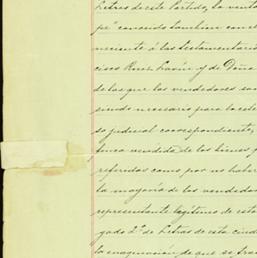 Letras de este Partido, la venta
pe" conocido tambien con el
neciente á las testamentaria
cisco Ruiz Lavin y de Doña
de las que los vendedores son
siendo necesario para la cele
so judicial correspondiente,
finca vendida de los bienes
referidas como por no haber
la mayoría de los vendedor
representante legítimo de esta
gado 2º de Letras de esta ciud
la enagenacion de que se trat